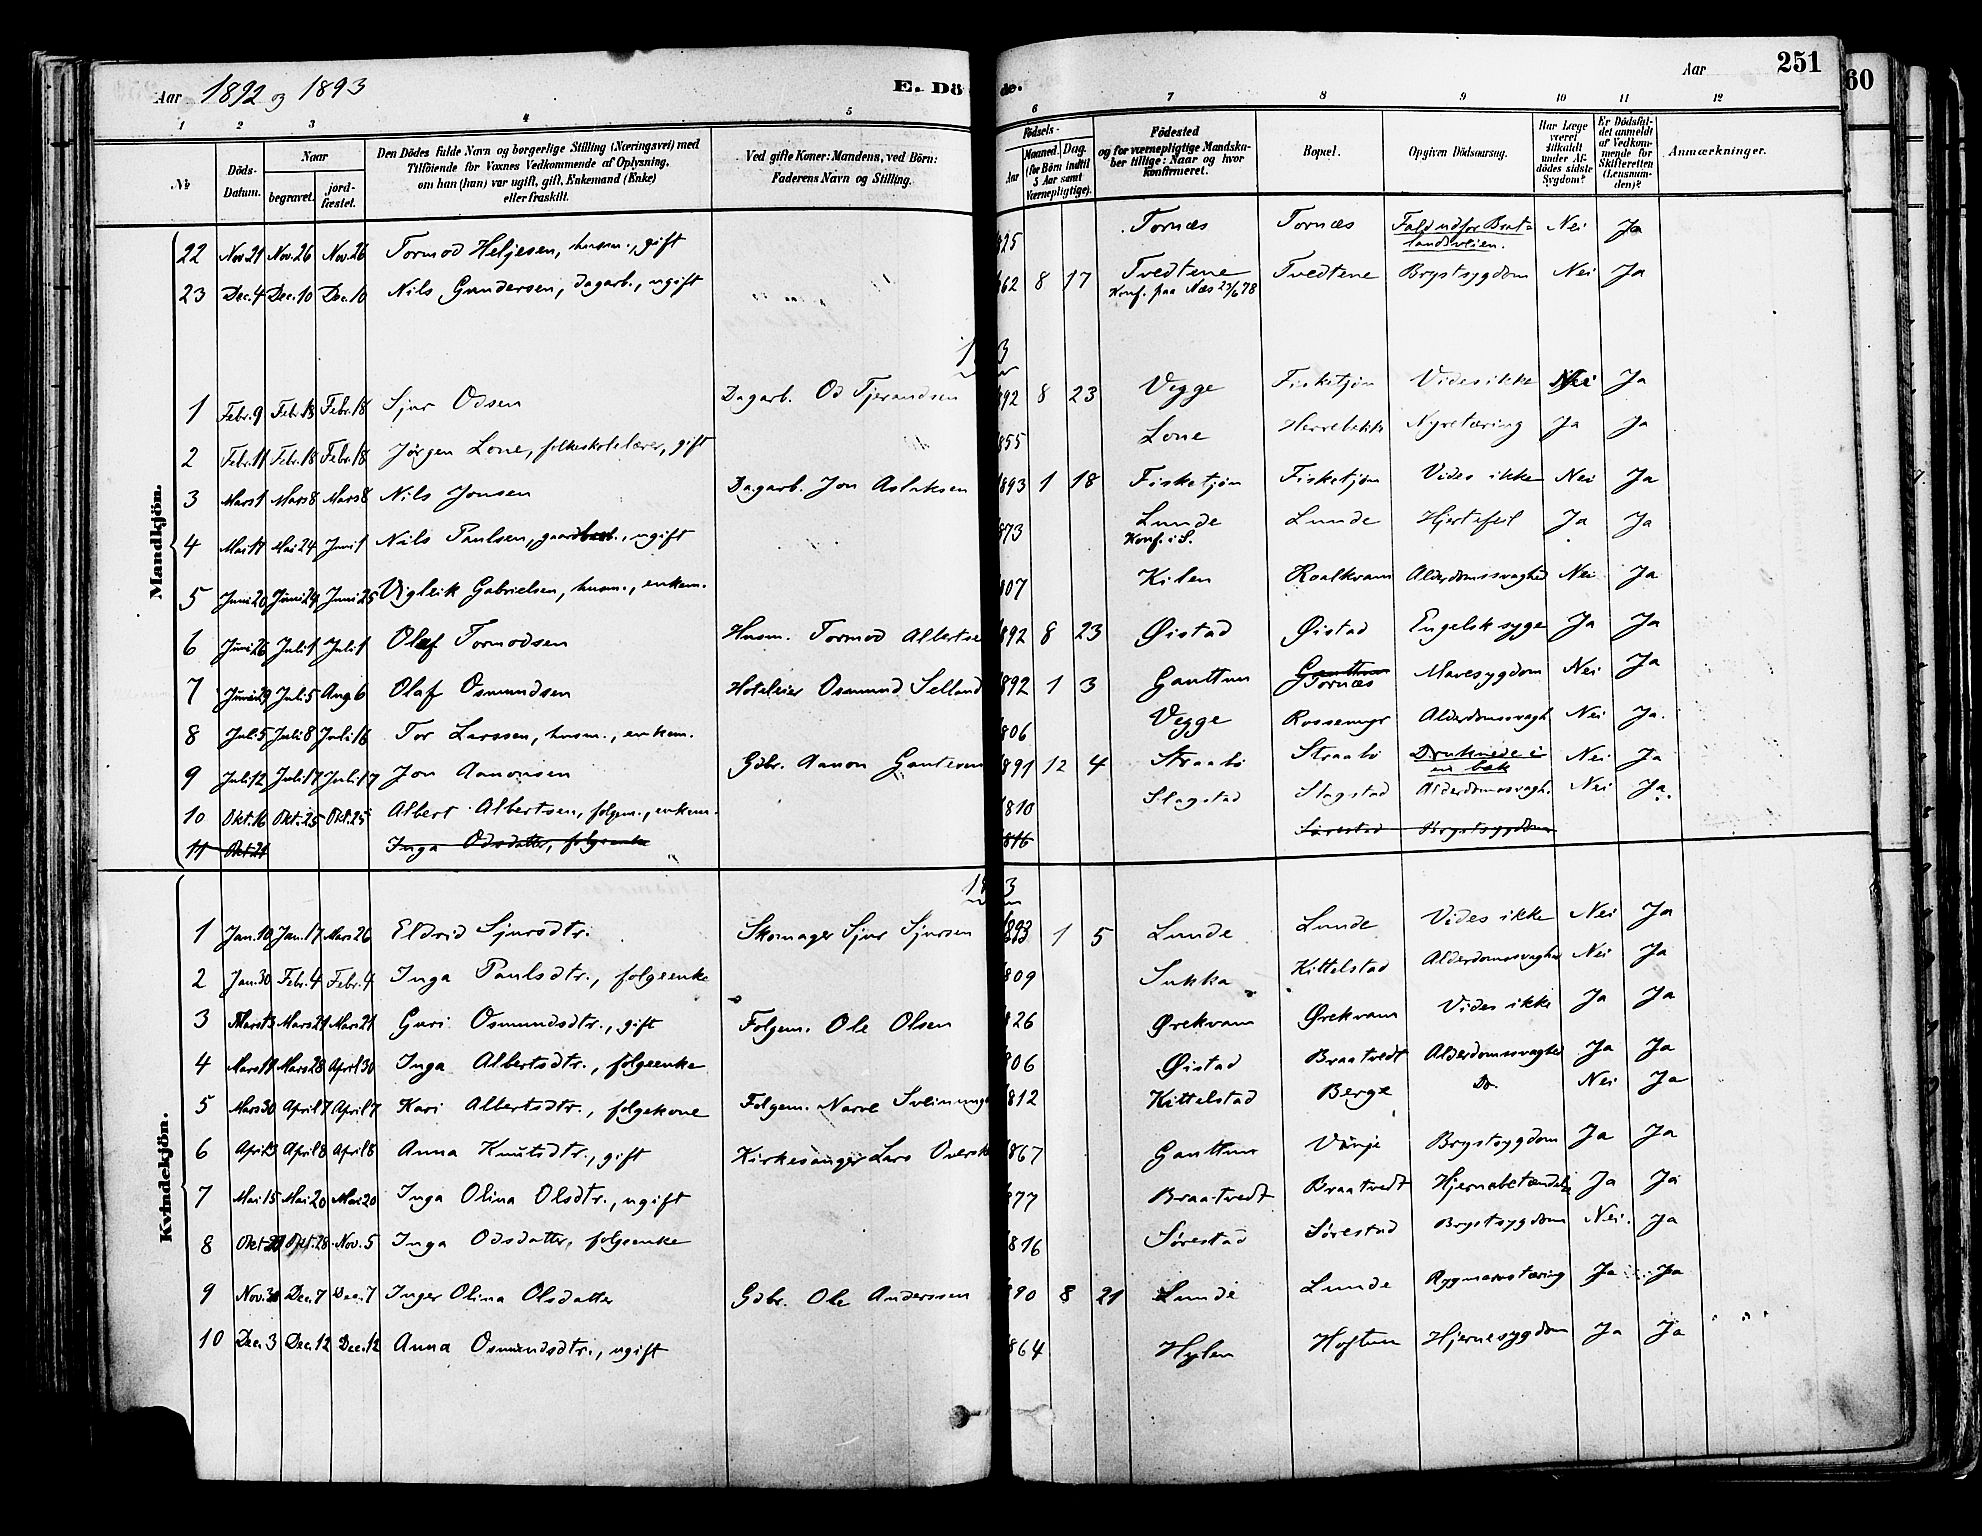 Aar 1892 og 1893 E. Dö de. Aar 251
60
1 2 3 4 5 6 7 8 9 10 11 12
№ Döds-Datum. Naar begravet. jordfæstet. Den Dödes fulde Navn og borgerlige Stilling (Næringsvei) med Tilföiende for Voxnes Vedkommende af Oplysning, om han (hun) var ugift, gift, Enkemand (Enke) eller fraskilt. Ved gifte Koner: Mandens, ved Börn: Faderens Navn og Stilling. Födsels- Aar Maaned. Dag. (for Börn indtil 5 Aar samt Værnepligtige). Födested og for værnepligtige Mandskaber tillige: Naar og hvor Konfirmeret. Bopæl. Opgiven Dödsaarsag. Har Læge været tilkaldt under Afdödes sidste Sygdom? Er Dödsfaldet anmeldt af Vedkommende for Skifteretten (Lensmanden)? Anmærkninger.
Mandkjön.
22 Nov. 21 Nov. 26 Nov. 26 Tormod Heljesen, husm., gift 825 Tornæs Tornæs Fald udfor Brat-landsveien. Nei Ja
23 Dec. 4 Dec. 10 Dec. 10 Nils Gundersen, dagarb., ugift 862 8 17 Tvedtene Konf. paa Næs 23/6 78 Tvedtene Brystsygdom Nei Ja
1 3
1 Febr. 9 Febr. 18 Febr. 18 Sjur Odsen Dagarb. Od Tjerandsen 892 8 23 Vegge Fisketjøn Vides ikke Nei Ja
2 Febr. 11 Febr. 18 Febr. 18 Jørgen Lone, folkeskolelærer, gift 855 Lone Herrebakk Nyretæring Ja Ja
3 Mars 1 Mars 8 Mars 8 Nils Jonsen Dagarb. Jon Aslaksen 893 1 18 Fisketjøn Fisketjøn Vides ikke Nei Ja
4 Mai 17 Mai 24 Juni 1 Nils Paulsen, gaardbrb., ugift 873 Lunde Konf. i S. Lunde Hjertefeil Ja Ja
5 Juni 20 Juni 24 Juni 25 Vigleik Gabrielsen, husm., enkem. 807 Kilen Roalkvam Alderdomssvaghed Nei Ja
6 Juni 26 Juli 1 Juli 1 Olaf Tormodsen Husm. Tormod Albertse 892 8 23 Øistad Øistad Engelsk syge Ja Ja
7 Juni 29 Juli 5 Aug 6 Olaf Osmundsen Hoteleier Osmund Selland 892 1 3 Gauttun Gauttun Tornæs Mavesygdom Nei Ja
8 Juli 5 Juli 8 Juli 16 Tor Larssen, husm., enkem. 806 Vegge Rossemyr Alderdomssvagh. Nei Ja.
9 Juli 12 Juli 17 Juli 17 Jon Aamonsen Gdbr. Aamon 891 12 4 Straabø Straabø Druknede i en bæk Nei Ja
10 Okt. 16 Okt. 25 Okt. 25 Albert Albertsen, folgem., enkem. 810 Slagstad Slagstad Alderdomssvagh. Nei Ja
11 Okt. 21 Inga Odsdatter, folgeenke 816 Sørestad Brystsygdom
Kvindekjön.
1 3
1 Jan. 10 Jan. 17 Mars 26 Eldrid Sjursdtr. Skomager Sjur Sjursen 893 1 5 Lunde Lunde Vides ikke Nei Ja
2 Jan. 30 Febr. 4 Febr. 4 Inga Paulsdtr., folgeenke 809 Sukka Kittelstad Alderdomssvaghed Nei Ja
3 Mars 13 Mars 21 Mars 21 Guri Osmundsdtr., gift Folgem. Ole Olsen 826 Ørekvam Ørekvam Vides ikke Ja Ja
4 Mars 19 Mars 28 April 30 Inga Albertsdtr., folgeenke 806 Øistad Braatvedt Alderdomssvaghed Ja Ja
5 Mars 30 April 7 April 7 Kari Albertsdtr., folgekone Folgem. Narve Sveinung 812 Kittelstad Berge Do. Nei Ja
6 April 3 April 8 April 8 Anna Knutsdtr., gift Kirkesanger Lars Oversk 867 Gauttun Vinje Brystsygdom Ja Ja
7 Mai 15 Mai 20 Mai 20 Inga Olina Olsdtr., ugift 877 Braatvedt Braatvedt Hjernebetændels Ja Ja
8 Okt. 21 Okt. 28 Nov. 5 Inga Odsdatter, folgeenke 816 Sørestad Sørestad Brystsygdom Nei. Ja
9 Nov. 30 Dec. 7 Dec. 7 Inger Olina Olsdatter Gdbr. Ole Anderssen 890 8 21 Lunde Lunde Rygmarvstæring Ja Ja
10 Dec. 3 Dec. 12 Dec. 12 Anna Osmundsdtr., ugift 864 Hylen Hoftun Hjernesygdom Ja Ja